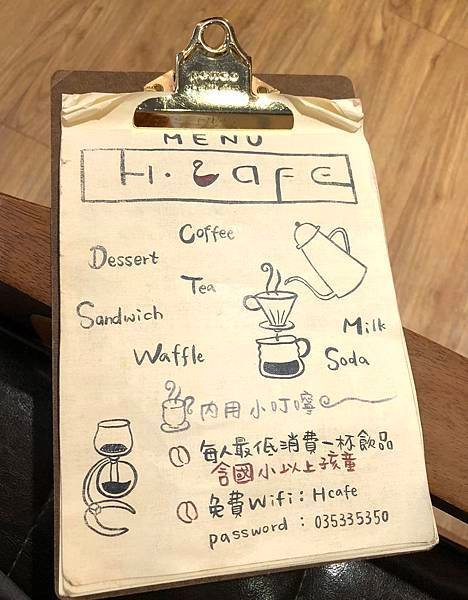 MENU
H.cafe
Coffee
Dessert
Tea
Sandwich
Milk
Waffle
Soda
內用小叮嚀
每人最低消費一杯飲品
含國小以上孩童
免費Wifi：Hcafe
password：035335350